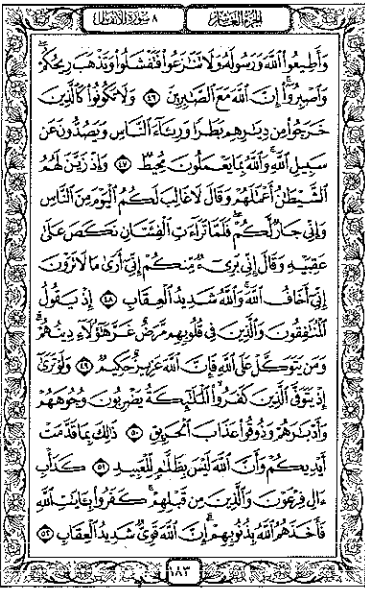 الجزء العاشر ٨ سورة الأنفال
وَأَطِيعُوا۟ ٱللَّهَ وَرَسُولَهُۥ وَلَا تَنَٰزَعُوا۟ فَتَفْشَلُوا۟ وَتَذْهَبَ رِيحُكُمْ ۖ
وَٱصْبِرُوٓا۟ ۚ إِنَّ ٱللَّهَ مَعَ ٱلصَّٰبِرِينَ ٤٦ وَلَا تَكُونُوا۟ كَٱلَّذِينَ
خَرَجُوا۟ مِن دِيَٰرِهِم بَطَرًا وَرِئَآءَ ٱلنَّاسِ وَيَصُدُّونَ عَن
سَبِيلِ ٱللَّهِ ۚ وَٱللَّهُ بِمَا يَعْمَلُونَ مُحِيطٌ ٤٧ وَإِذْ زَيَّنَ لَهُمُ
ٱلشَّيْطَٰنُ أَعْمَٰلَهُمْ وَقَالَ لَا غَالِبَ لَكُمُ ٱلْيَوْمَ مِنَ ٱلنَّاسِ
وَإِنِّى جَارٌ لَّكُمْ ۖ فَلَمَّا تَرَآءَتِ ٱلْفِئَتَانِ نَكَصَ عَلَىٰ
عَقِبَيْهِ وَقَالَ إِنِّى بَرِىٓءٌ مِّنكُمْ إِنِّىٓ أَرَىٰ مَا لَا تَرَوْنَ
إِنِّىٓ أَخَافُ ٱللَّهَ ۚ وَٱللَّهُ شَدِيدُ ٱلْعِقَابِ ٤٨ إِذْ يَقُولُ
ٱلْمُنَٰفِقُونَ وَٱلَّذِينَ فِى قُلُوبِهِم مَّرَضٌ غَرَّ هَٰٓؤُلَآءِ دِينُهُمْ ۗ
وَمَن يَتَوَكَّلْ عَلَى ٱللَّهِ فَإِنَّ ٱللَّهَ عَزِيزٌ حَكِيمٌ ٤٩ وَلَوْ تَرَىٰٓ
إِذْ يَتَوَفَّى ٱلَّذِينَ كَفَرُوا۟ ۙ ٱلْمَلَٰٓئِكَةُ يَضْرِبُونَ وُجُوهَهُمْ
وَأَدْبَٰرَهُمْ وَذُوقُوا۟ عَذَابَ ٱلْحَرِيقِ ٥٠ ذَٰلِكَ بِمَا قَدَّمَتْ
أَيْدِيكُمْ وَأَنَّ ٱللَّهَ لَيْسَ بِظَلَّٰمٍ لِّلْعَبِيدِ ٥١ كَدَأْبِ
ءَالِ فِرْعَوْنَ ۙ وَٱلَّذِينَ مِن قَبْلِهِمْ ۚ كَفَرُوا۟ بِـَٔايَٰتِ ٱللَّهِ
فَأَخَذَهُمُ ٱللَّهُ بِذُنُوبِهِمْ ۗ إِنَّ ٱللَّهَ قَوِىٌّ شَدِيدُ ٱلْعِقَابِ ٥٢
١٨٣